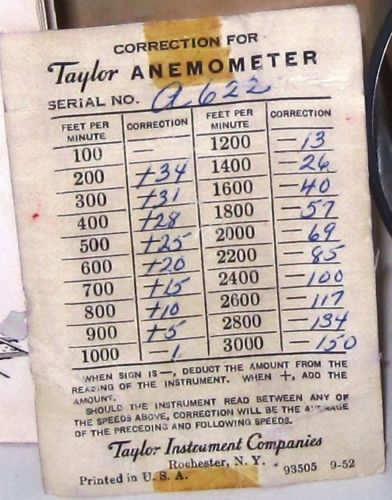 CORRECTION FOR
Taylor ANEMOMETER
SERIAL NO. A622
FEET PER MINUTE CORRECTION FEET PER MINUTE CORRECTION
100 — 1200 -13
200 +34 1400 -26
300 +31 1600 -40
400 +28 1800 -57
500 +25 2000 -69
600 +20 2200 -85
700 +15 2400 -100
800 +10 2600 -117
900 +5 2800 -134
1000 -1 3000 -150
WHEN SIGN IS —, DEDUCT THE AMOUNT FROM THE
READING OF THE INSTRUMENT. WHEN +, ADD THE
AMOUNT.
SHOULD THE INSTRUMENT READ BETWEEN ANY OF
THE SPEEDS ABOVE, CORRECTION WILL BE THE AVERAGE
OF THE PRECEDING AND FOLLOWING SPEEDS.
Taylor Instrument Companies
Rochester, N. Y.
Printed in U. S. A. 93505 9-52